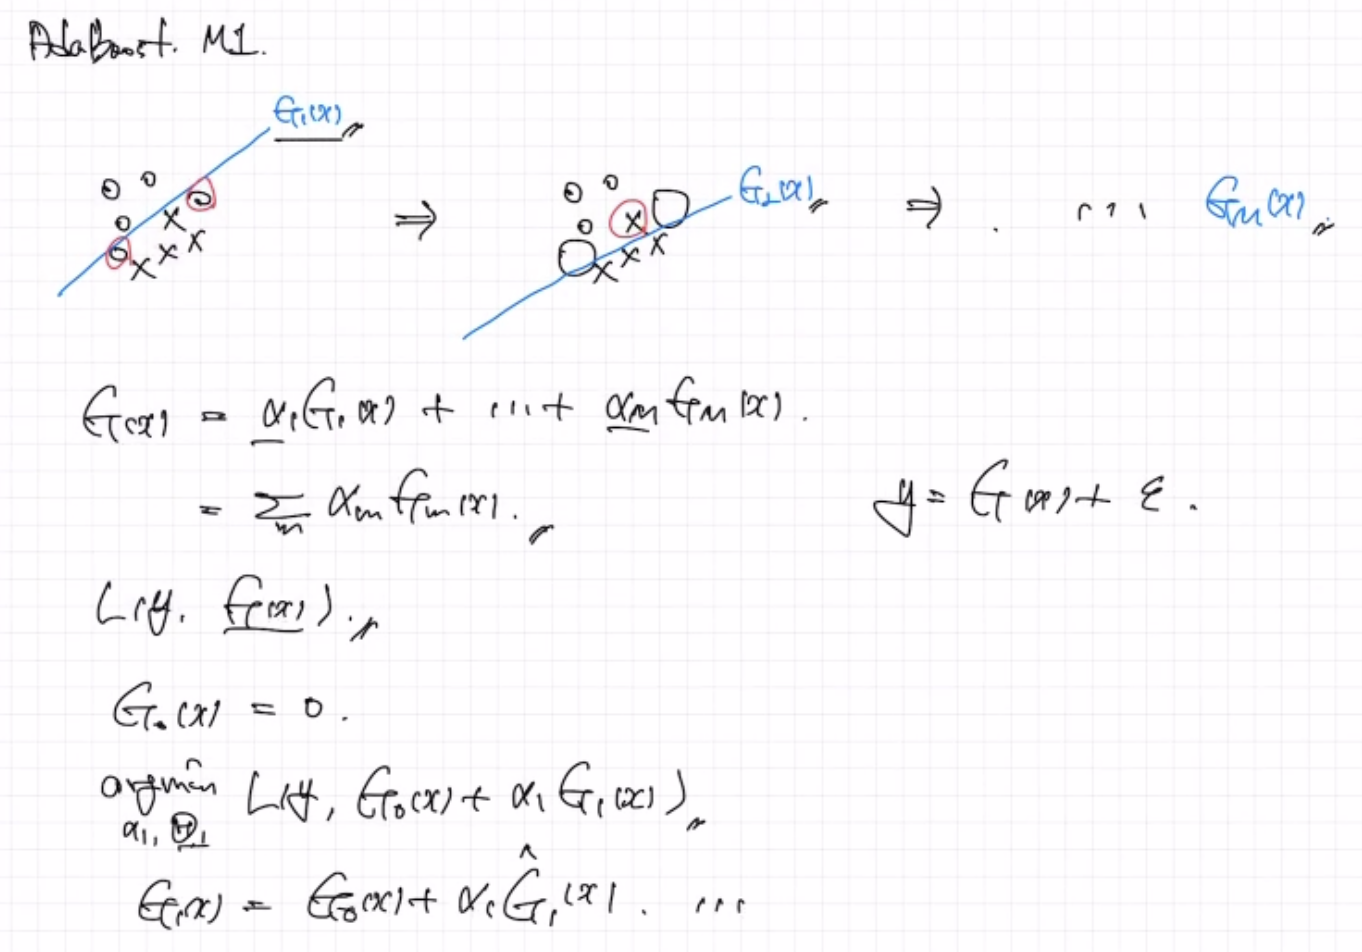 AdaBoost. M1.
G₁(x)
⇒ G₂(x) ⇒ . ... G_M(x)
G(x) = α₁G₁(x) + ... + α_M G_M(x).
= Σ_m α_m G_m(x).
y = G(x) + ε.
L(y, G(x)).
G₀(x) = 0.
argmin L(y, G₀(x) + α₁ G₁(x))
α₁, Θ₁
G₁(x) = G₀(x) + α₁ Ĝ₁(x). ...